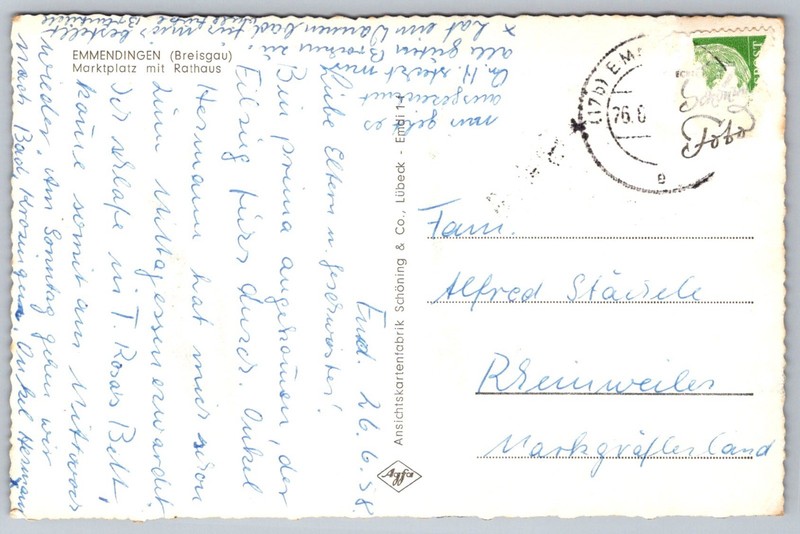 EMMENDINGEN (Breisgau)
Marktplatz mit Rathaus
Emd. 26.6.58
Liebe Eltern u. Geschwister!
Bin prima angekommen, der
Eilzug fuhr durch. Onkel
Hermann hat mich schon
zum Mittagessen erwartet.
Ich schlafe in T. Rosas Bett,
komme somit am Mittwoch
wieder. Am Sonntag gehen wir
nach Bad Krozingen. Onkel Hermann
x hat ein Wannenbad für mich bestellt
alle guten
On. H. steckt mir
ausgezeichnet
mir geht es
Ansichtskartenfabrik Schöning & Co., Lübeck - Emdi 14
Agfa
(17b) EM
26.6
e
Schöning
Foto
Fam.
Alfred Stächele
Rheinweiler
Markgräflerland